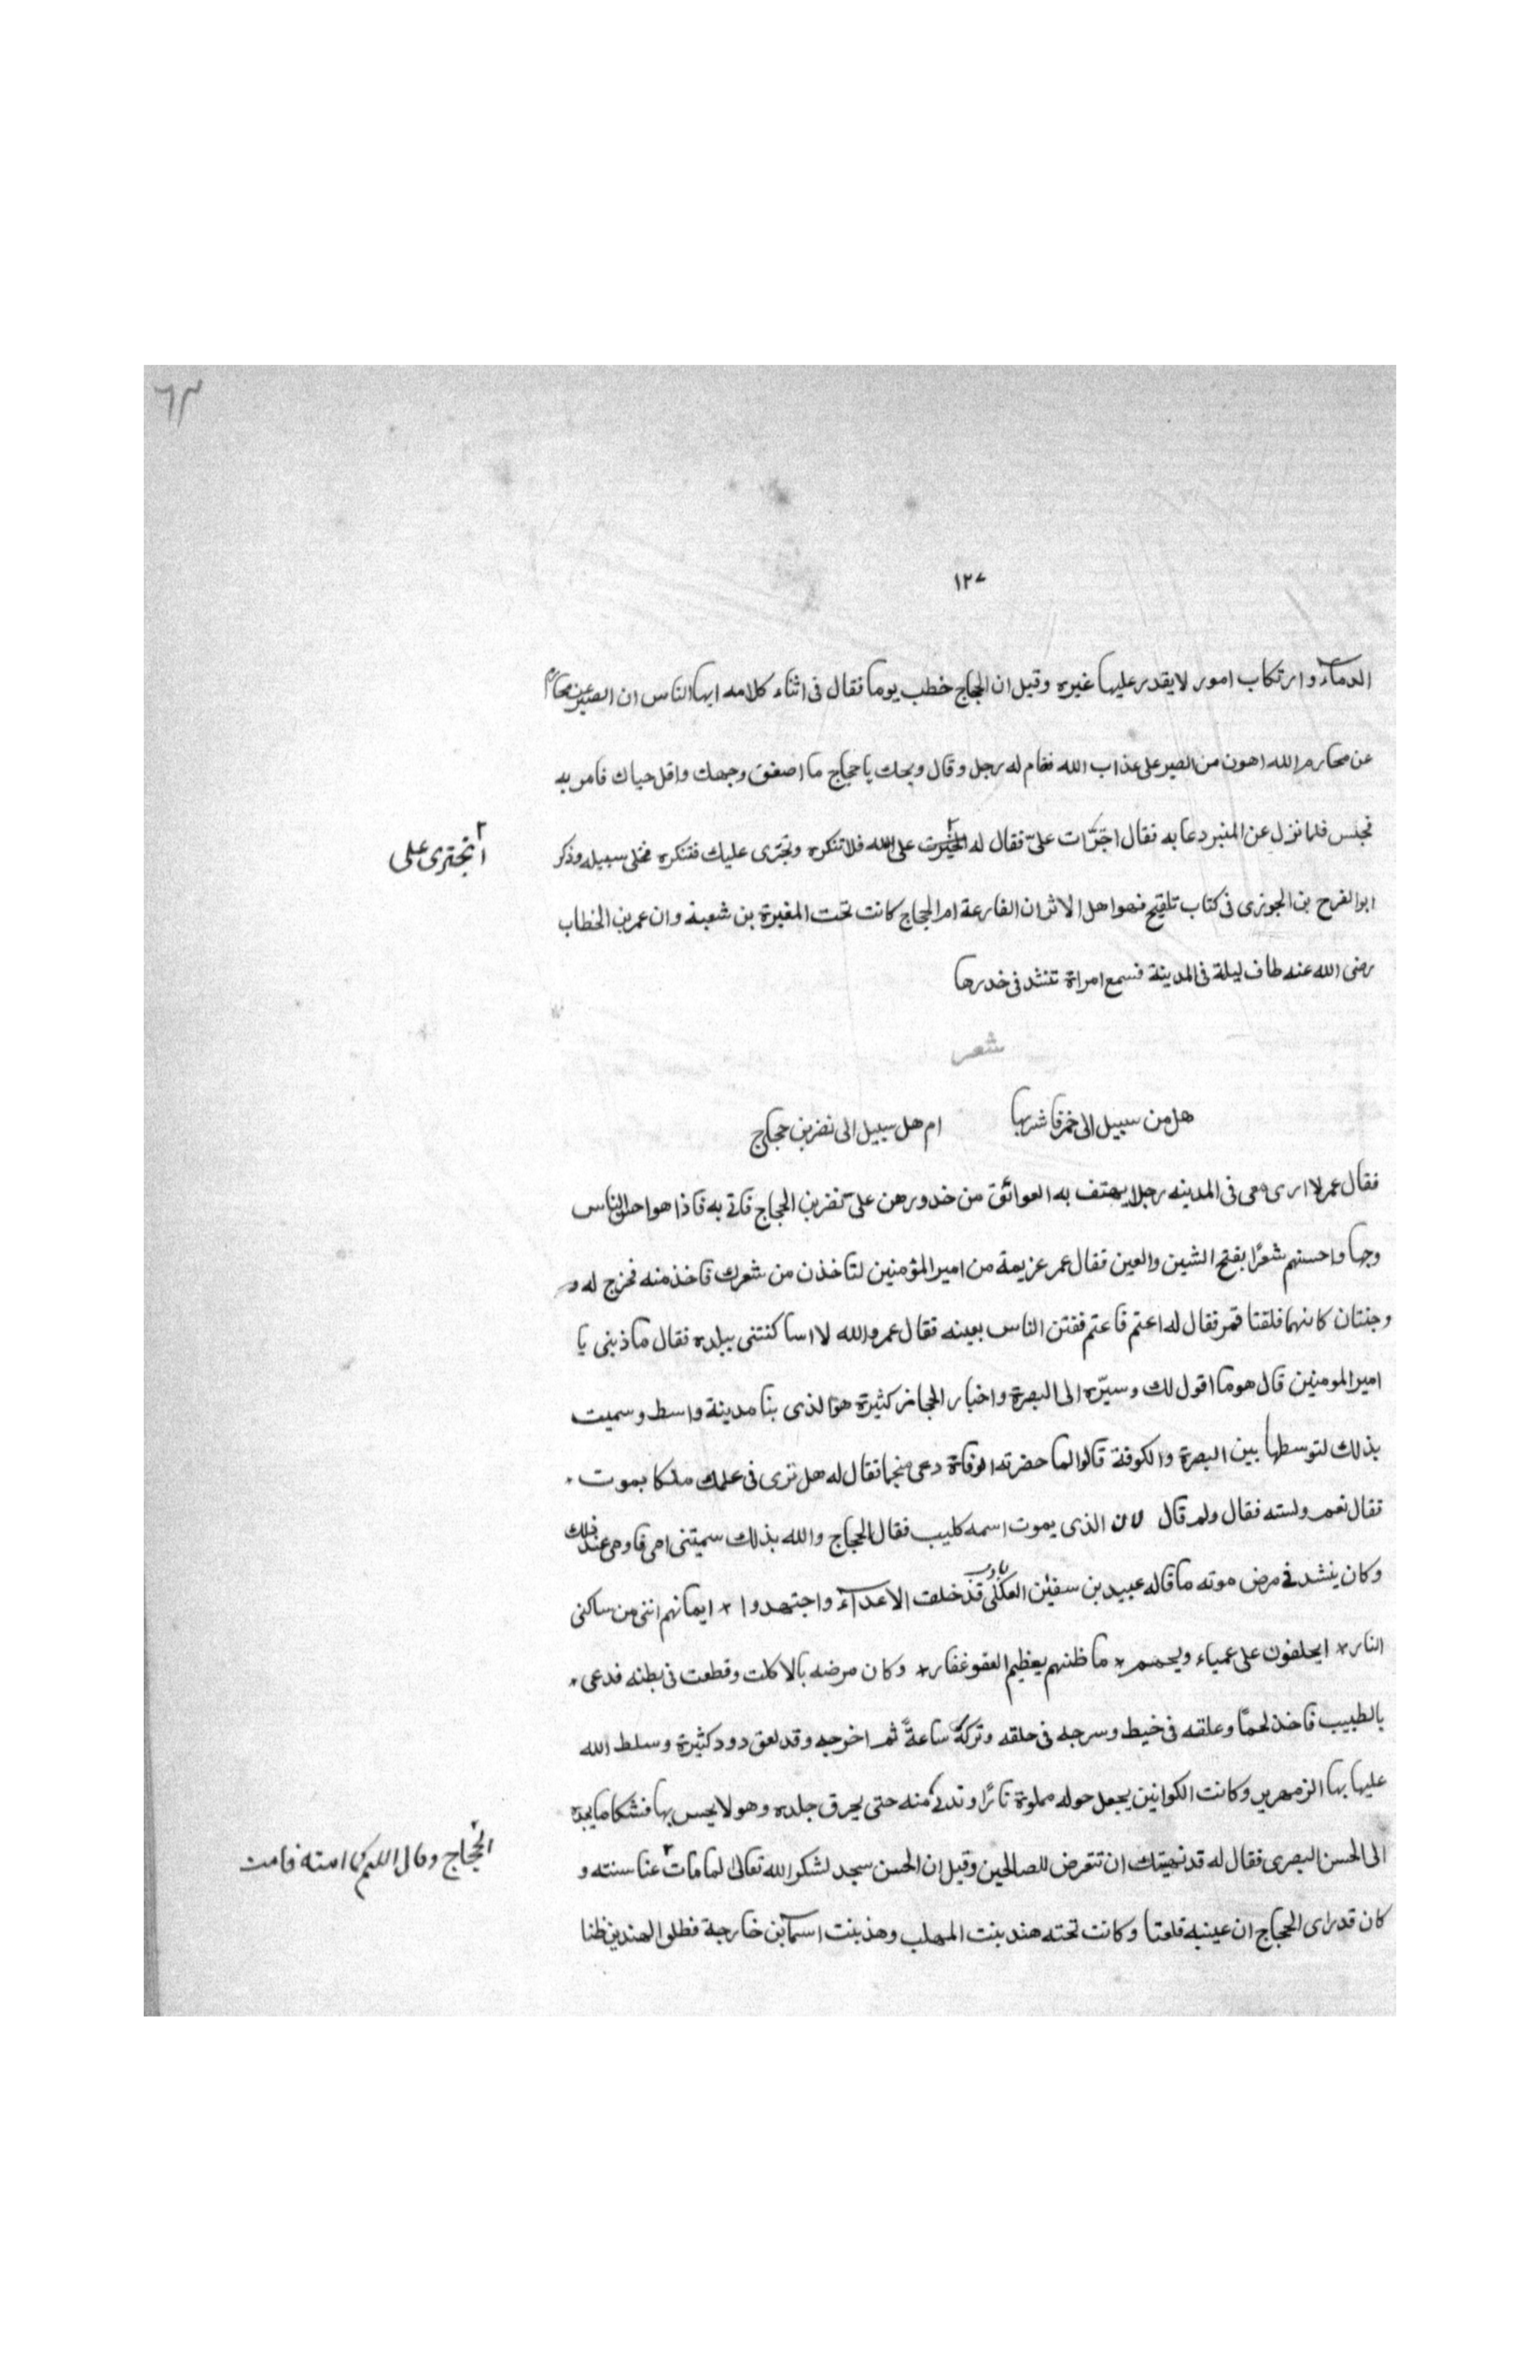 ٦٣
١٢٧
الدمآء وارتكاب امور لا يقدر عليها غيره وقيل ان الحجاج خطب يوما فقال فى اثناء كلامه ايها الناس ان الصبر عن محارم
عن محارم الله اهون من الصبر على عذاب الله فقام له رجل وقال ويحك يا حجاج ما اصفق وجهك واقل حياك فامر به
فحبس فلما نزل عن المنبر دعا به فقال اجترّات علىّ فقال له على الله فلا تنكره وتجترى عليك فتنكره فخلى سبيله وذكر
اتجترى على
ابو الفرح بن الجوزى فى كتاب تلقيح فهوا هل الاثر ان الفارعة ام الحجاج كانت تحت المغيرة بن شعبة وان عمر بن الخطاب
رضى الله عنه طاف ليلة فى المدينة فسمع امراة تنشد فى خدرها
شعر
هل من سبيل الى خمر فاشربها ام هل سبيل الى نضر بن حجاج
فقال عمر لا ارى معى فى المدينه رجلا يهتف به العوائق من خدورهن علىّ نضر بن الحجاج فاتى به فاذا هو احسن الناس
وجها واحسنهم شعرًا بفتح الشين والعين فقال عمر عزيمة من امير المؤمنين لتاخذن من شعرك فاخذ منه فخرج له و
وجنتان كانهما فلقتا قمر فقال له اعتم فاعتم ففتن الناس بعينه فقال عمر والله لا اساكنتنى ببلده فقال ما ذنبى يا
امير المومنين قال هو ما اقول لك وسيّره الى البصرة واخبار الحجاز كثيرة هو الذى بنا مدينة واسط وسميت
بذلك لتوسطها بين البصرة والكوفة قالوا لما حضرته الوفاة دعى منجما فقال له هل ترى فى علمك ملكا بموت
فقال نعم ولسته فقال ولم قال لان الذى يموت اسمه كليب فقال الحجاج والله بذلك سميتنى امى فاوصى عند ذلك
وكان ينشد فى مرض موته ما قاله عبيد بن سفين العكلى يا رب قد خلفت الاعدآء واجتهدوا * ايمانهم اننى من ساكنى
النار * ايحلفون على عمياء ويحهم * ما ظنهم بعظيم العفو غفار * وكان مرضه بالاكلت وقطعت فى بطنه فدعى
بالطبيب فاخذ لحمًا وعلقه فى خيط وسرجه فى حلقه وتركه ساعةً ثم اخرجه وقد لعق دود كثيرة وسلط الله
عليها بها الزمهرير وكانت الكوانين يجعل حوله مملوة نارًا وتدنى منه حتى يحرق جلده وهو لا يحس بها فشكا ما يجده
الى الحسن البصرى فقال له قد نهيتك ان تتعرض للصالحين وقيل ان الحسن سجد لشكر الله تعالى لما مات عنا سنته و
الحجاج وقال اللهم كما امته فامت
كان قد راى الحجاج ان عينيه قلعتا وكانت تحته هند بنت المهلب وهند بنت اسمآ بن خارجة فطلوا الهندين ظنا